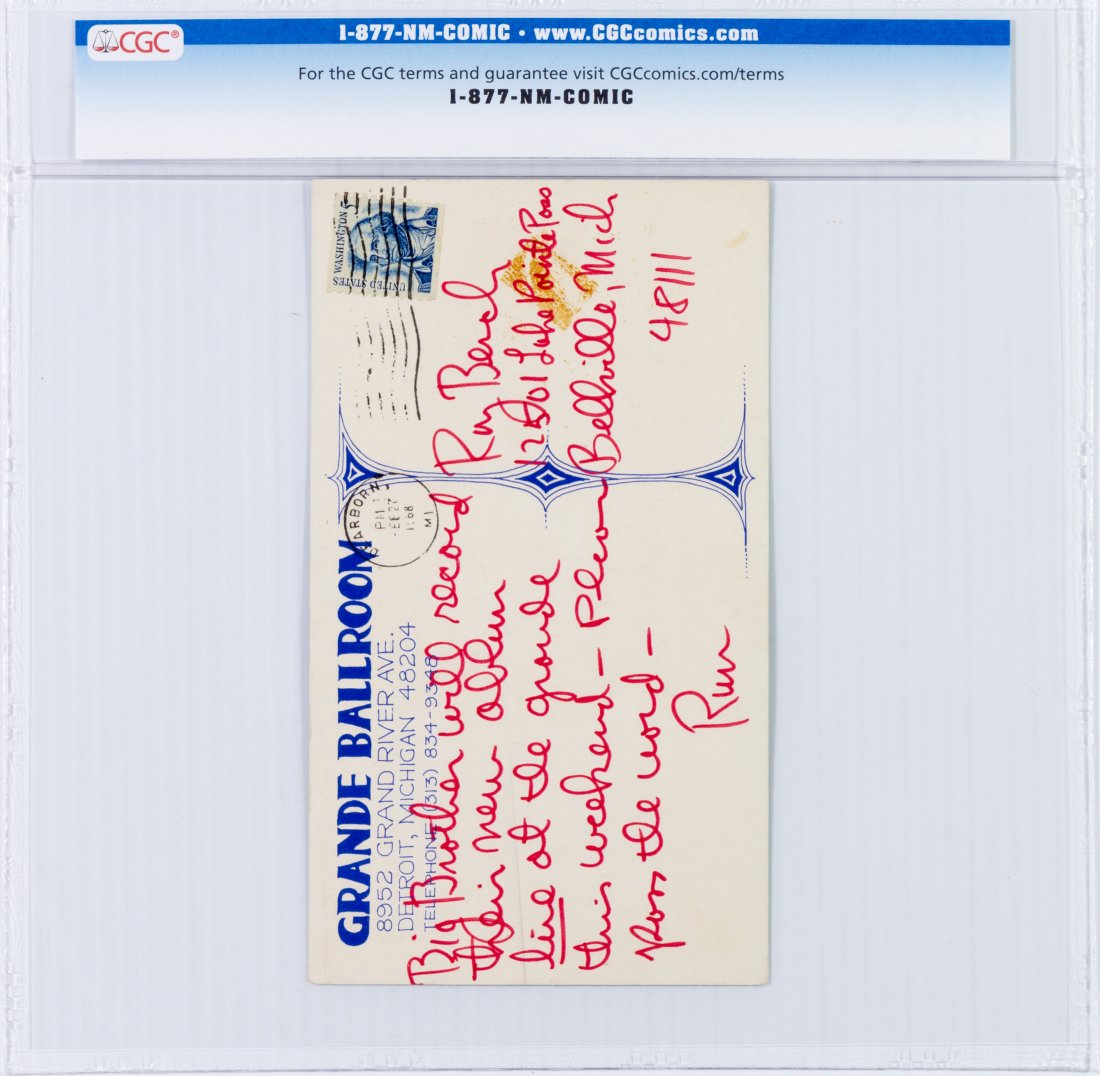 CGC®
1-877-NM-COMIC • www.CGCcomics.com
For the CGC terms and guarantee visit CGCcomics.com/terms
1-877-NM-COMIC
GRANDE BALLROOM
8952 GRAND RIVER AVE.
DETROIT, MICHIGAN 48204
TELEPHONE (313) 834-9348
Big Brother will record
their new album
live at the grande
this weekend – Please
Pass the word –
Russ
DEARBORN
PM
FEB 27
1968
MI
UNITED STATES
WASHINGTON 5
Ray Bench
Lake Pointe Pass
Bellville, Mich
48111